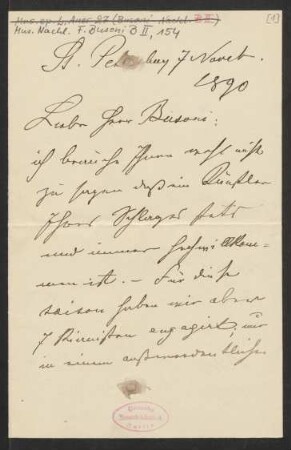 Mus. ep. L. Auer 87 (Busoni-Nachl. B II) [1]
Mus. Nachl. F. Busoni B II, 154
St. Petersburg 7 Novbr.
1890
Lieber Herr Busoni:
ich brauche Ihnen wohl nicht
zu sagen daß ein Künstler
Ihres Schlages stets
und immer hochwillkom-
men ist. – Für diese
saison haben wir aber
7 Pianisten engagirt, nur
in einem außerordentlichen